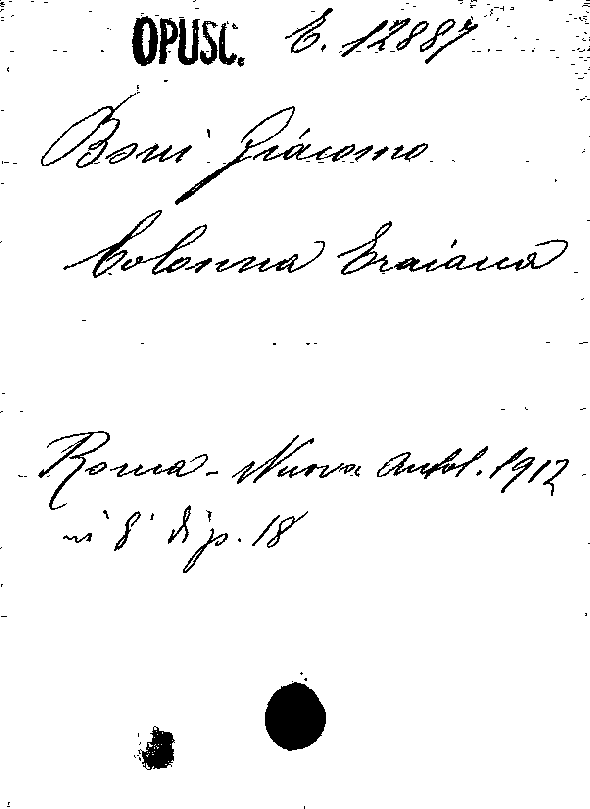 OPUSC. E. 12887
Boni Giacomo
Colonna Traiana
Roma - Nuova Antol. 1912
in 8° di p. 18